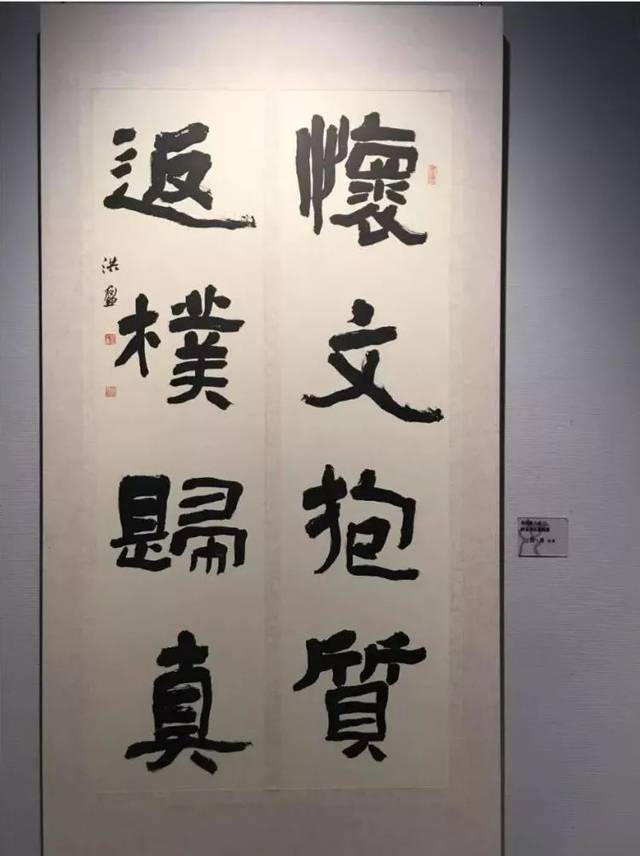 懷文抱質
返樸歸真
洪盤